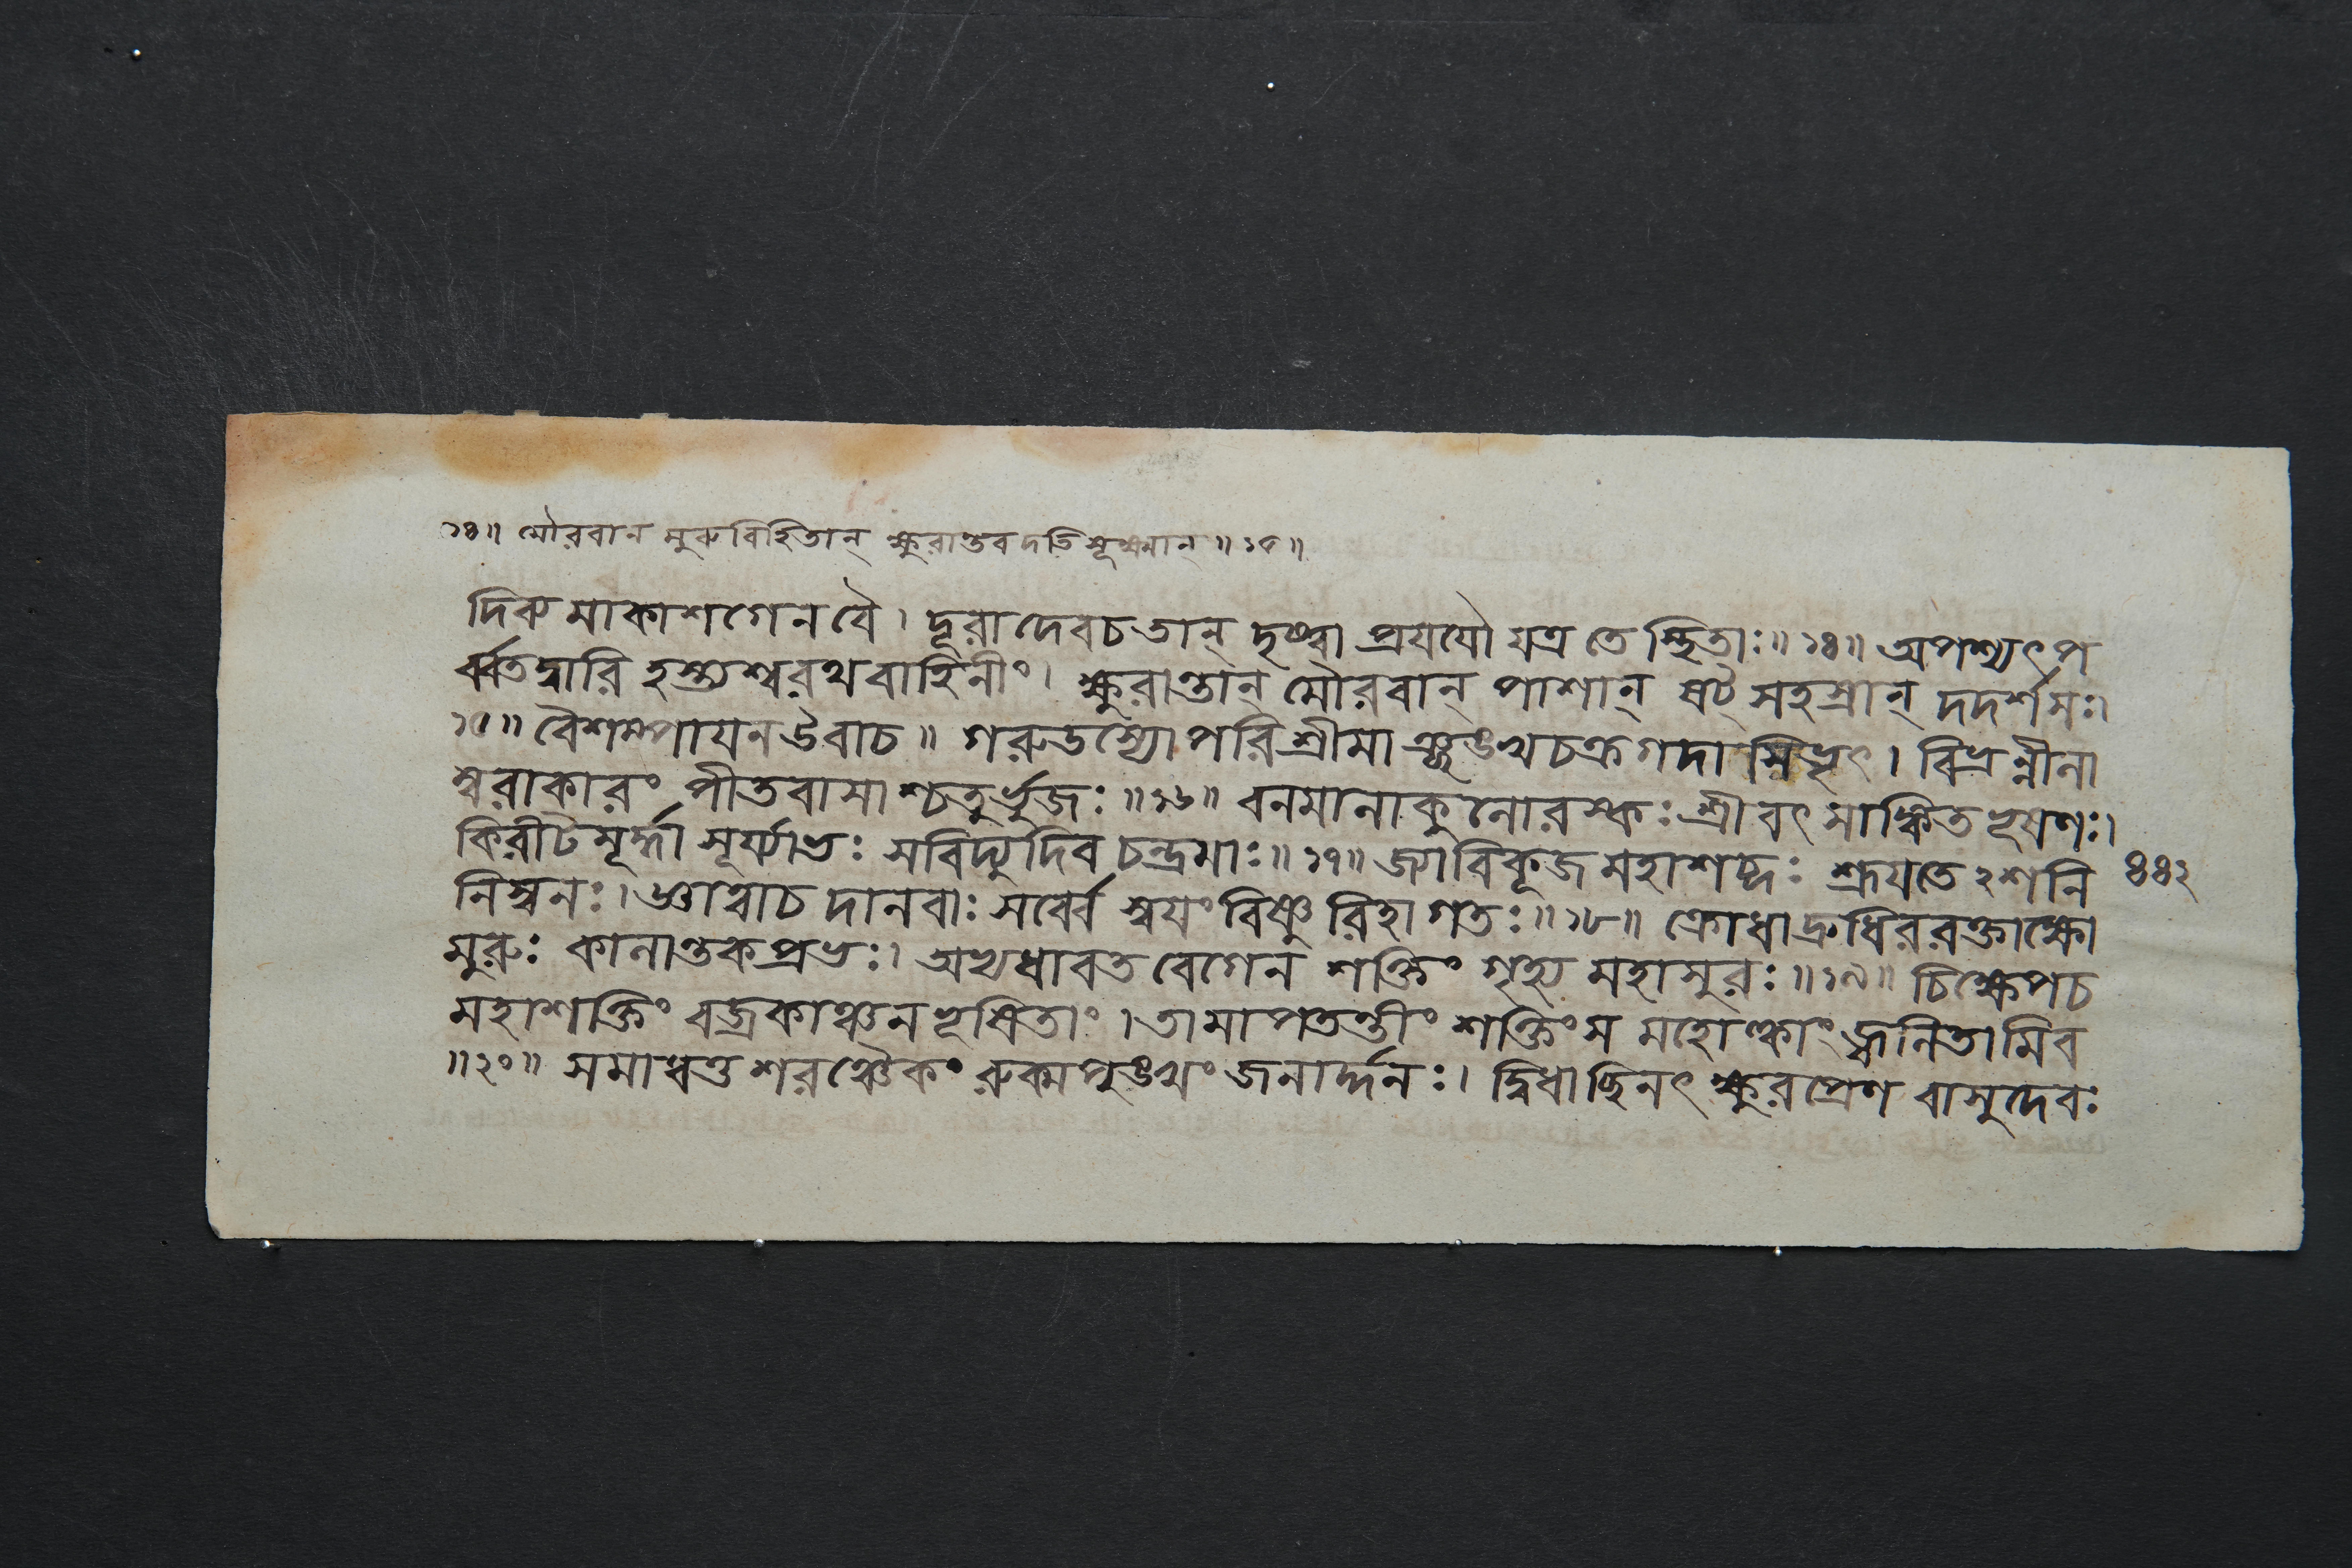 ১৪॥ মৌরবান মুরুবিহিতান্ ক্ষুরান্তবদতি সূক্ষ্মান্॥১৫॥
দিব্যমাকাশগেনবৈ। দূরাদেবচতান্ দৃষ্ট্বা প্রযযৌ যত্র তে স্থিতাঃ॥১৪॥ অপশ্যৎপ
র্ব্বতদ্বারি হস্ত্যশ্বরথবাহিনীং। ক্ষুরান্তান্ মৌরবান্ পাশান্ ষট্ সহস্রান্ দদর্শসঃ।
১৫॥ বৈশম্পাযন উবাচ॥ গরুডস্যোপরিশ্রীমাঞ্ছঙ্খচক্রগদাসিভৃৎ। বিভ্রন্নীলা
ম্বরাকারং পীতবাসাশ্চতুর্ভুজঃ॥১৬॥ বনমালাকুলোরস্কঃ শ্রীবৎসাঙ্কিতভূষণঃ।
কিরীটমূর্দ্ধা সূর্য্যাভঃ সবিদ্যুদিব চন্দ্রমাঃ॥১৭॥ জ্যাবিকূজমহাশব্দঃ শ্রূযতেঽশনি
নিস্বনঃ। জ্ঞাত্বাচ দানবাঃ সর্ব্বে স্বযং বিষ্ণু রিহাগতঃ॥১৮॥ ক্রোধাদ্রুধিররক্তাক্ষো
মুরুঃ কালান্তকপ্রভঃ। অভ্যধাবত বেগেন শক্তিং গৃহ্য মহাসুরঃ॥১৯॥ চিক্ষেপচ
মহাশক্তিং বজ্রকাঞ্চনভূষিতাং। তামাপতন্তীং শক্তিংস মহোল্কাং জ্বলিতামিব
॥২০॥ সমাধত্ত শরঞ্চৈকং রুক্মপুঙ্খং জনার্দ্দনঃ। দ্বিধাচ্ছিনৎ ক্ষুরপ্রেণ বাসুদেবঃ
৪৪২